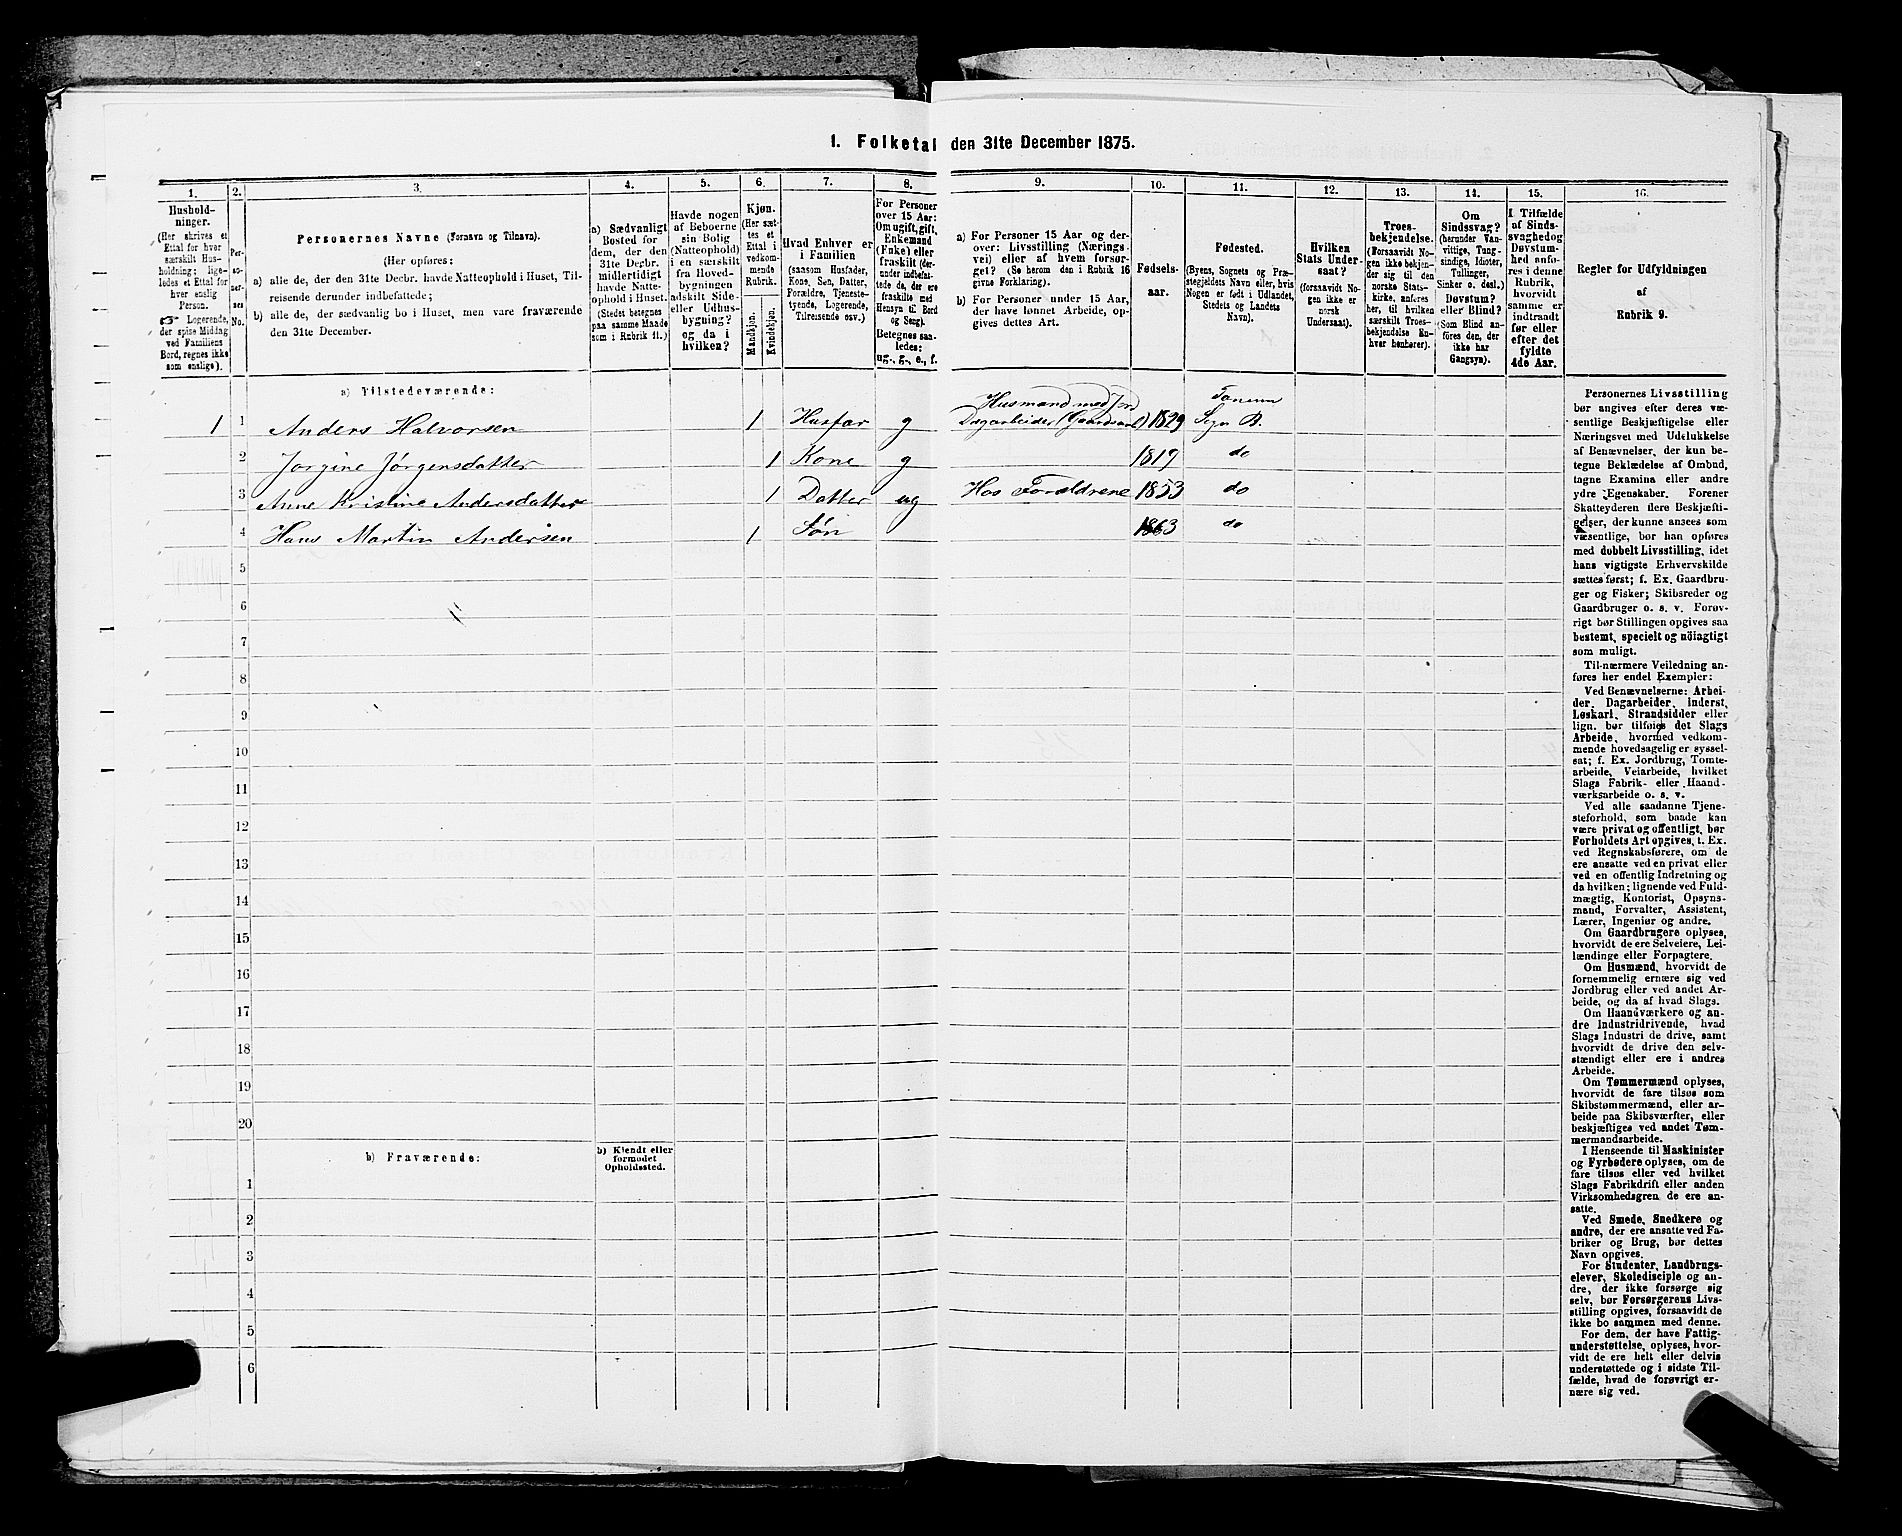 1. Folketal den 31te December 1875.
1.
2.
3.
4.
5.
6.
7.
8.
9.
10.
11.
12.
13.
14.
15.
16.
Hushold-
ninger.
(Her skrives et
Ettal for hver
særskilt Hus-
holdning; lige-
ledes et Ettal for
hver enslig
Person.
☞ Logerende,
der spise Middag
ved Familiens
Bord, regnes ikke
som enslige).
Per-
so-
ner-
nes
No.
Personernes Navne (Fornavn og Tilnavn).
(Her opføres:
a) alle de, der den 31te Decbr. havde Natteophold i Huset, Til-
reisende derunder indbefattede;
b) alle de, der sædvanlig bo i Huset, men vare fraværende
den 31te December.
a) Sædvanligt
Bosted for
dem, der den
31te Decbr.
midlertidigt
havde Natte-
ophold i Huset.
(Stedet betegnes
paa samme Maade
som i Rubrik 11.)
Havde nogen
af Beboerne
sin Bolig
(Natteophold)
i en særskilt
fra Hoved-
bygningen
adskilt Side-
eller Udhus-
bygning?
og da i
hvilken?
Kjøn.
(Her sæt-
tes et
Ettal i
vedkom-
mende
Rubrik.
Mandkjøn.
Kvindekjøn.
Hvad Enhver er
i Familien
(saasom Husfader,
Kone, Søn, Datter,
Forældre, Tjeneste-
tyende, Logerende,
Tilreisende osv.)
For Personer
over 15 Aar:
Om ugift, gift,
Enkemand
(Enke) eller
fraskilt (der-
under indbefat-
tede de, der ere
fraskilte med
Hensyn til Bord
og Seng).
Betegnes saa-
ledes:
ug., g., e., f.
a) For Personer 15 Aar og der-
over: Livsstilling (Nærings-
vei) eller af hvem forsør-
get? (Se herom den i Rubrik 16
givne Forklaring).
b) For Personer under 15 Aar,
der have lønnet Arbeide, op-
gives dettes Art.
Fødsels-
aar.
Fødested.
(Byens, Sognets og Præ-
stegjeldets Navn eller, hvis
Nogen er født i Udlandet,
Stedets og Landets
Navn).
Hvilken
Stats Under-
saat?
(forsaavidt No-
gen ikke er
norsk
Undersaat).
Troes-
bekjendelse.
(Forsaavidt No-
gen ikke bekjen-
der sig til den
norske Stats-
kirke, anføres
her, til hvilken
særskilt Troes-
bekjendelse En-
hver henhører).
Om
Sindssvag?
(herunder Van-
vittige, Tung-
sindige, Idioter,
Tullinger,
Sinker o. desl.)
Døvstum?
eller Blind?
(Som Blind an-
føres den, der
ikke har
Gangsyn).
I Tilfælde
af Sinds-
svaghed og
Døvstum-
hed anfø-
res i denne
Rubrik,
hvorvidt
samme er
indtraadt
før eller
efter det
fyldte
4de Aar.
Regler for Udfyldningen
af
Rubrik 9.
a) Tilstedeværende:
Husmand med Jord
1 1 Anders Halvorsen 1 Husfar g Dagarbeider 1829 Sogn B.
2 Jorgine Jørgensdatter 1 Kone g 1819 do
3 Anne Kristine Andersdatter 1 Datter ug Hos Forældrene 1853 do
4 Hans Martin Andersen 1 Søn 1863 do
5
6
7
8
9
10
11
12
13
14
15
16
17
18
19
20
b) Fraværende:
b) Kjendt eller
formodet
Opholdssted.
1
2
3
4
5
6
Personernes Livsstilling
bør angives efter deres væ-
sentlige Beskjæftigelse eller
Næringsvei med Udelukkelse
af Benævnelser, der kun be-
tegne Beklædelse af Ombud,
tagne Examina eller andre
ydre Egenskaber. Forener
Skatteyderen flere Beskjæfti-
gelser, der kunne ansees som
væsentlige, bør han opføres
med dobbelt Livsstilling, idet
hans vigtigste Erhvervskilde
sættes først; f. Ex. Gaardbru-
ger og Fisker; Skibsreder og
Gaardbruger o. s. v. Forøv-
rigt bør Stillingen opgives saa
bestemt, specielt og nöiagtigt
som muligt.
Til nærmere Veiledning an-
føres her endel Exempler:
Ved Benævnelserne: Arbei-
der, Dagarbeider, Inderst,
Løskarl, Strandsidder eller
lign. bør tilføies det Slags
Arbeide, hvormed vedkom-
mende hovedsagelig er syssel-
sat; f. Ex. Jordbrug, Tomte-
arbeide, Veiarbeide, hvilket
Slags Fabrik- eller Haand-
værksarbeide o. s. v.
Ved alle saadanne Tjene-
steforhold, som baade kan
være privat og offentligt, bør
Forholdets Art opgives, t. Ex.
ved Regnskabsførere, om de
ere ansatte ved en privat eller
ved en offentlig Indretning og
da hvilken; lignende ved Fuld-
mægtig, Kontorist, Opsyns-
mand, Forvalter, Assistent,
Lærer, Ingeniør og andre.
Om Gaardbrugere oplyses,
hvorvidt de ere Selveiere, Lei-
lændinge eller Forpagtere.
Om Husmænd, hvorvidt de
fornemmelig ernære sig ved
Jordbrug eller ved andet Ar-
beide, og da af hvad Slags.
Om Haandværkere og an-
dre Industridrivende, hvad
Slags Industri de drive, samt
hvorvidt de drive den selv-
stændigt eller ere i andres
Arbeide.
Om Tømmermænd oplyses,
hvorvidt de fare tilsøs som
Skibstømmermænd, eller ar-
beide paa Skibsværfter, eller
beskjæftiges ved andet Tøm-
mermandsarbeide.
I Henseende til Maskinister
og Fyrbødere oplyses, om de
fare tilsøs eller ved hvilket
Slags Fabrikdrift eller anden
Virksomhedsgren de ere an-
satte.
Ved Smede, Snedkere og
andre, der ere ansatte ved Fa-
briker og Brug, bør dettes
Navn opgives.
For Studenter, Landbrugs-
elever, Skoledisciple og an-
dre, der ikke forsørge sig
selv, bør Forsørgerens Livs-
stilling opgives, forsaavidt de
ikke bo sammen med denne.
For dem, der have Fattig-
understøttelse, oplyses, hvor-
vidt de ere helt eller delvis
understøttede og i sidste Til-
fælde, hvad de forøvrigt er-
nære sig ved.